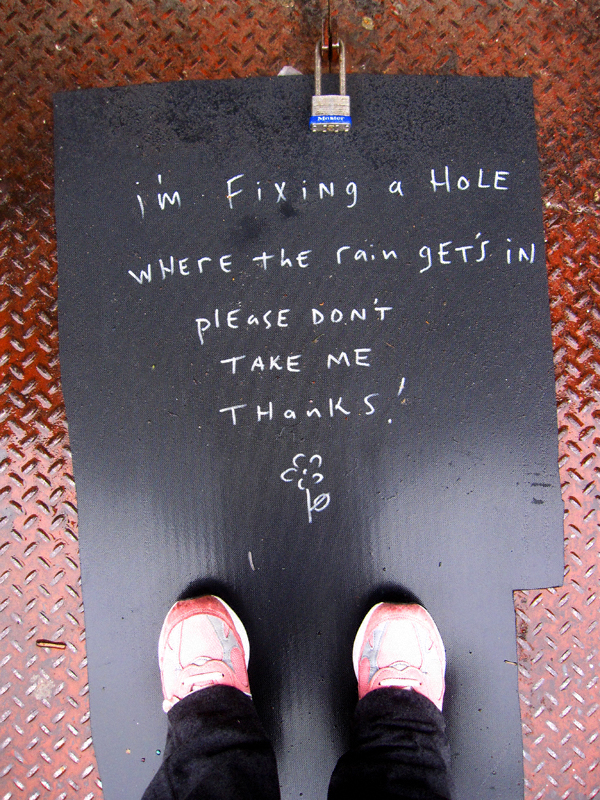 Master
i'm FiXiNg a HOLE
WHERE the rain gET'S iN
plEasE DON'T
TAKE ME
THanKS!